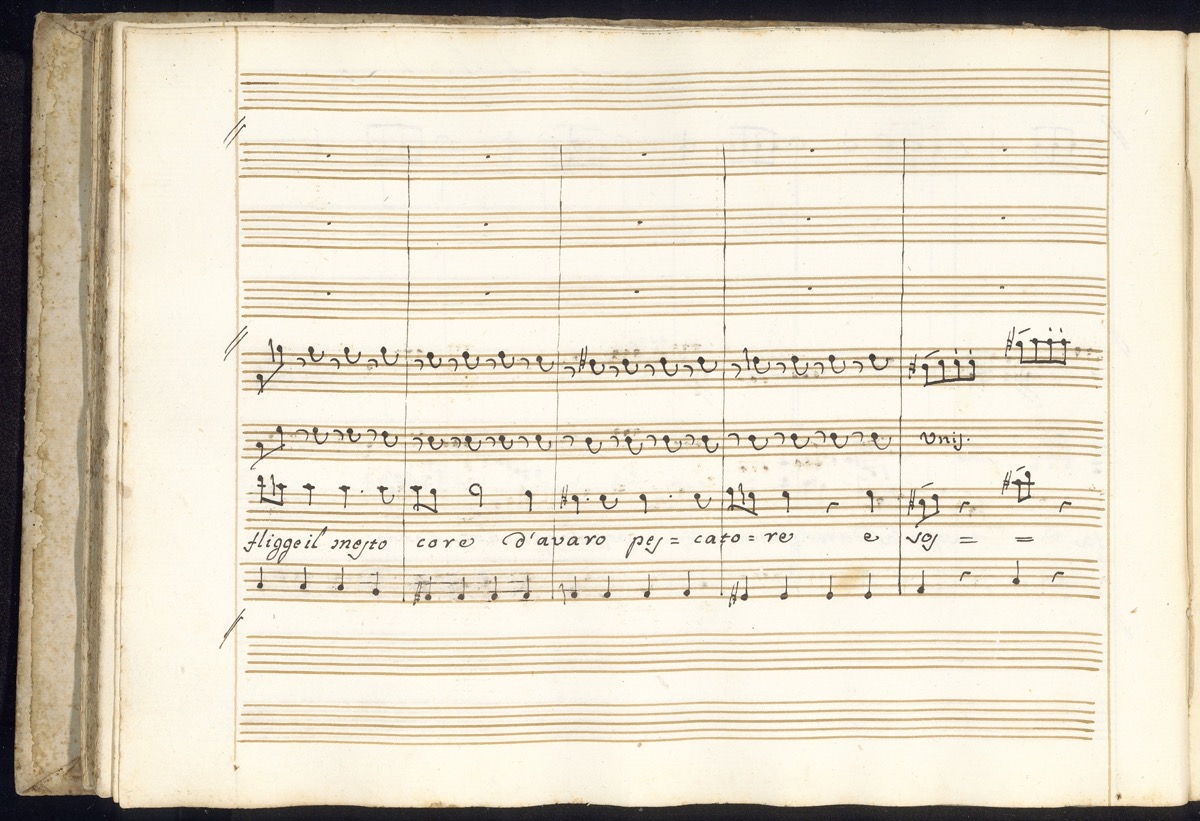 Unis.
fligge il mesto core d'avaro pes= cato=re e sos = =